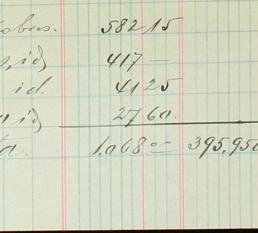 obros. 582 15
id 417 —
id. 41 25
id 27 60.
ta. 1.068 = 395.950